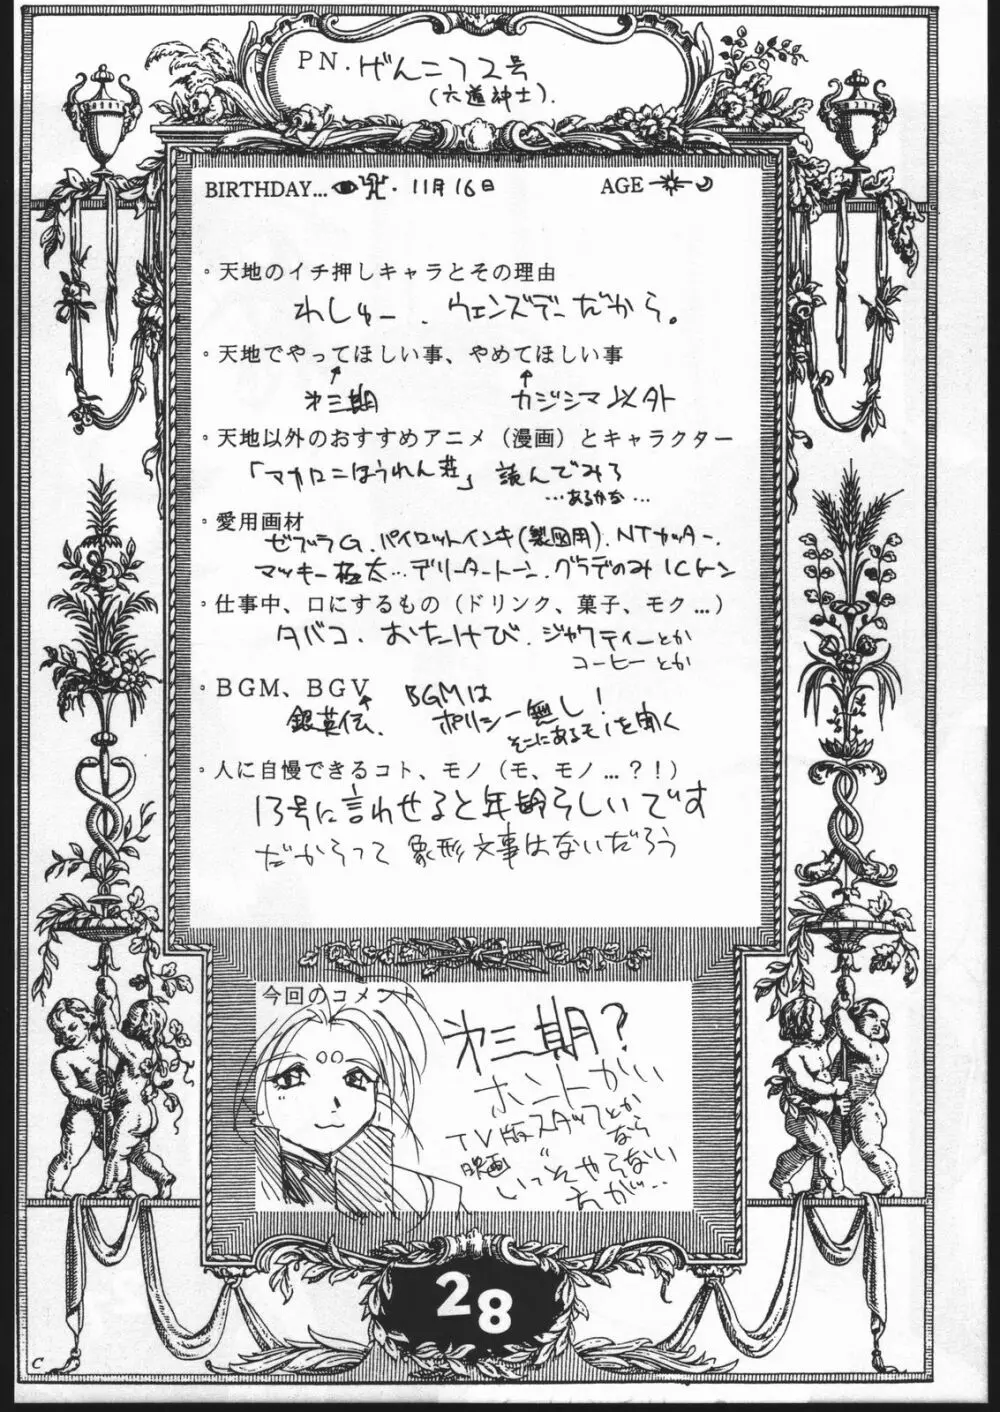 PN.げんこつ2号
(六道紳士).
BIRTHDAY... 11月16日
AGE
。天地のイチ押しキャラとその理由
わしゅー、ウェンズデーだから。
。天地でやってほしい事、やめてほしい事
↑ ↑
第三期 カジシマ以外
。天地以外のおすすめアニメ(漫画)とキャラクター
「マカロニほうれん荘」読んでみろ
...あるかな...
。愛用画材
ゼブラG、パイロットインキ(製図用)、NTカッター、
マッキー極太...デリータートーン、グラデのみICトーン
。仕事中、口にするもの(ドリンク、菓子、モク...)
タバコ、おたけび、ジャワティーとか
コーヒーとか
。BGM、BGV
↑
銀英伝、
BGMは
ポリシー無し!
そこにあるモノを聞く
。人に自慢できるコト、モノ(モ、モノ...?!)
13号に言わせると年齢らしいです
だからって象形文事はないだろう
今回のコメント
第三期?
ホントかい
TV版スタッフとか
映画なら
いっそやらない
ちが...
28
C